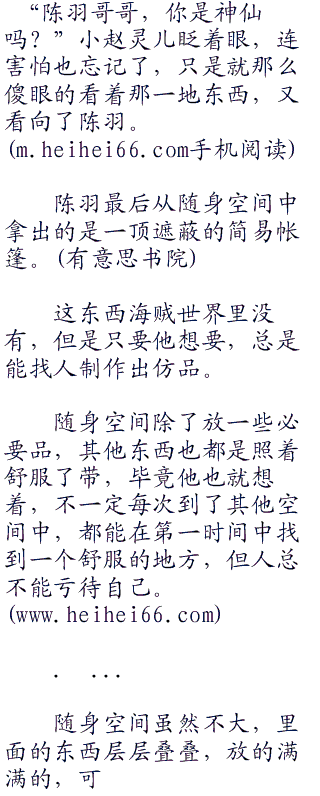 “陈羽哥哥，你是神仙
吗？”小赵灵儿眨着眼，连
害怕也忘记了，只是就那么
傻眼的看着那一地东西，又
看向了陈羽。
(m.heihei66.com手机阅读)
陈羽最后从随身空间中
拿出的是一顶遮蔽的简易帐
篷。(有意思书院)
这东西海贼世界里没
有，但是只要他想要，总是
能找人制作出仿品。
随身空间除了放一些必
要品，其他东西也都是照着
舒服了带，毕竟他也就想
着，不一定每次到了其他空
间中，都能在第一时间中找
到一个舒服的地方，但人总
不能亏待自己。
(www.heihei66.com)
. ...
随身空间虽然不大，里
面的东西层层叠叠，放的满
满的，可